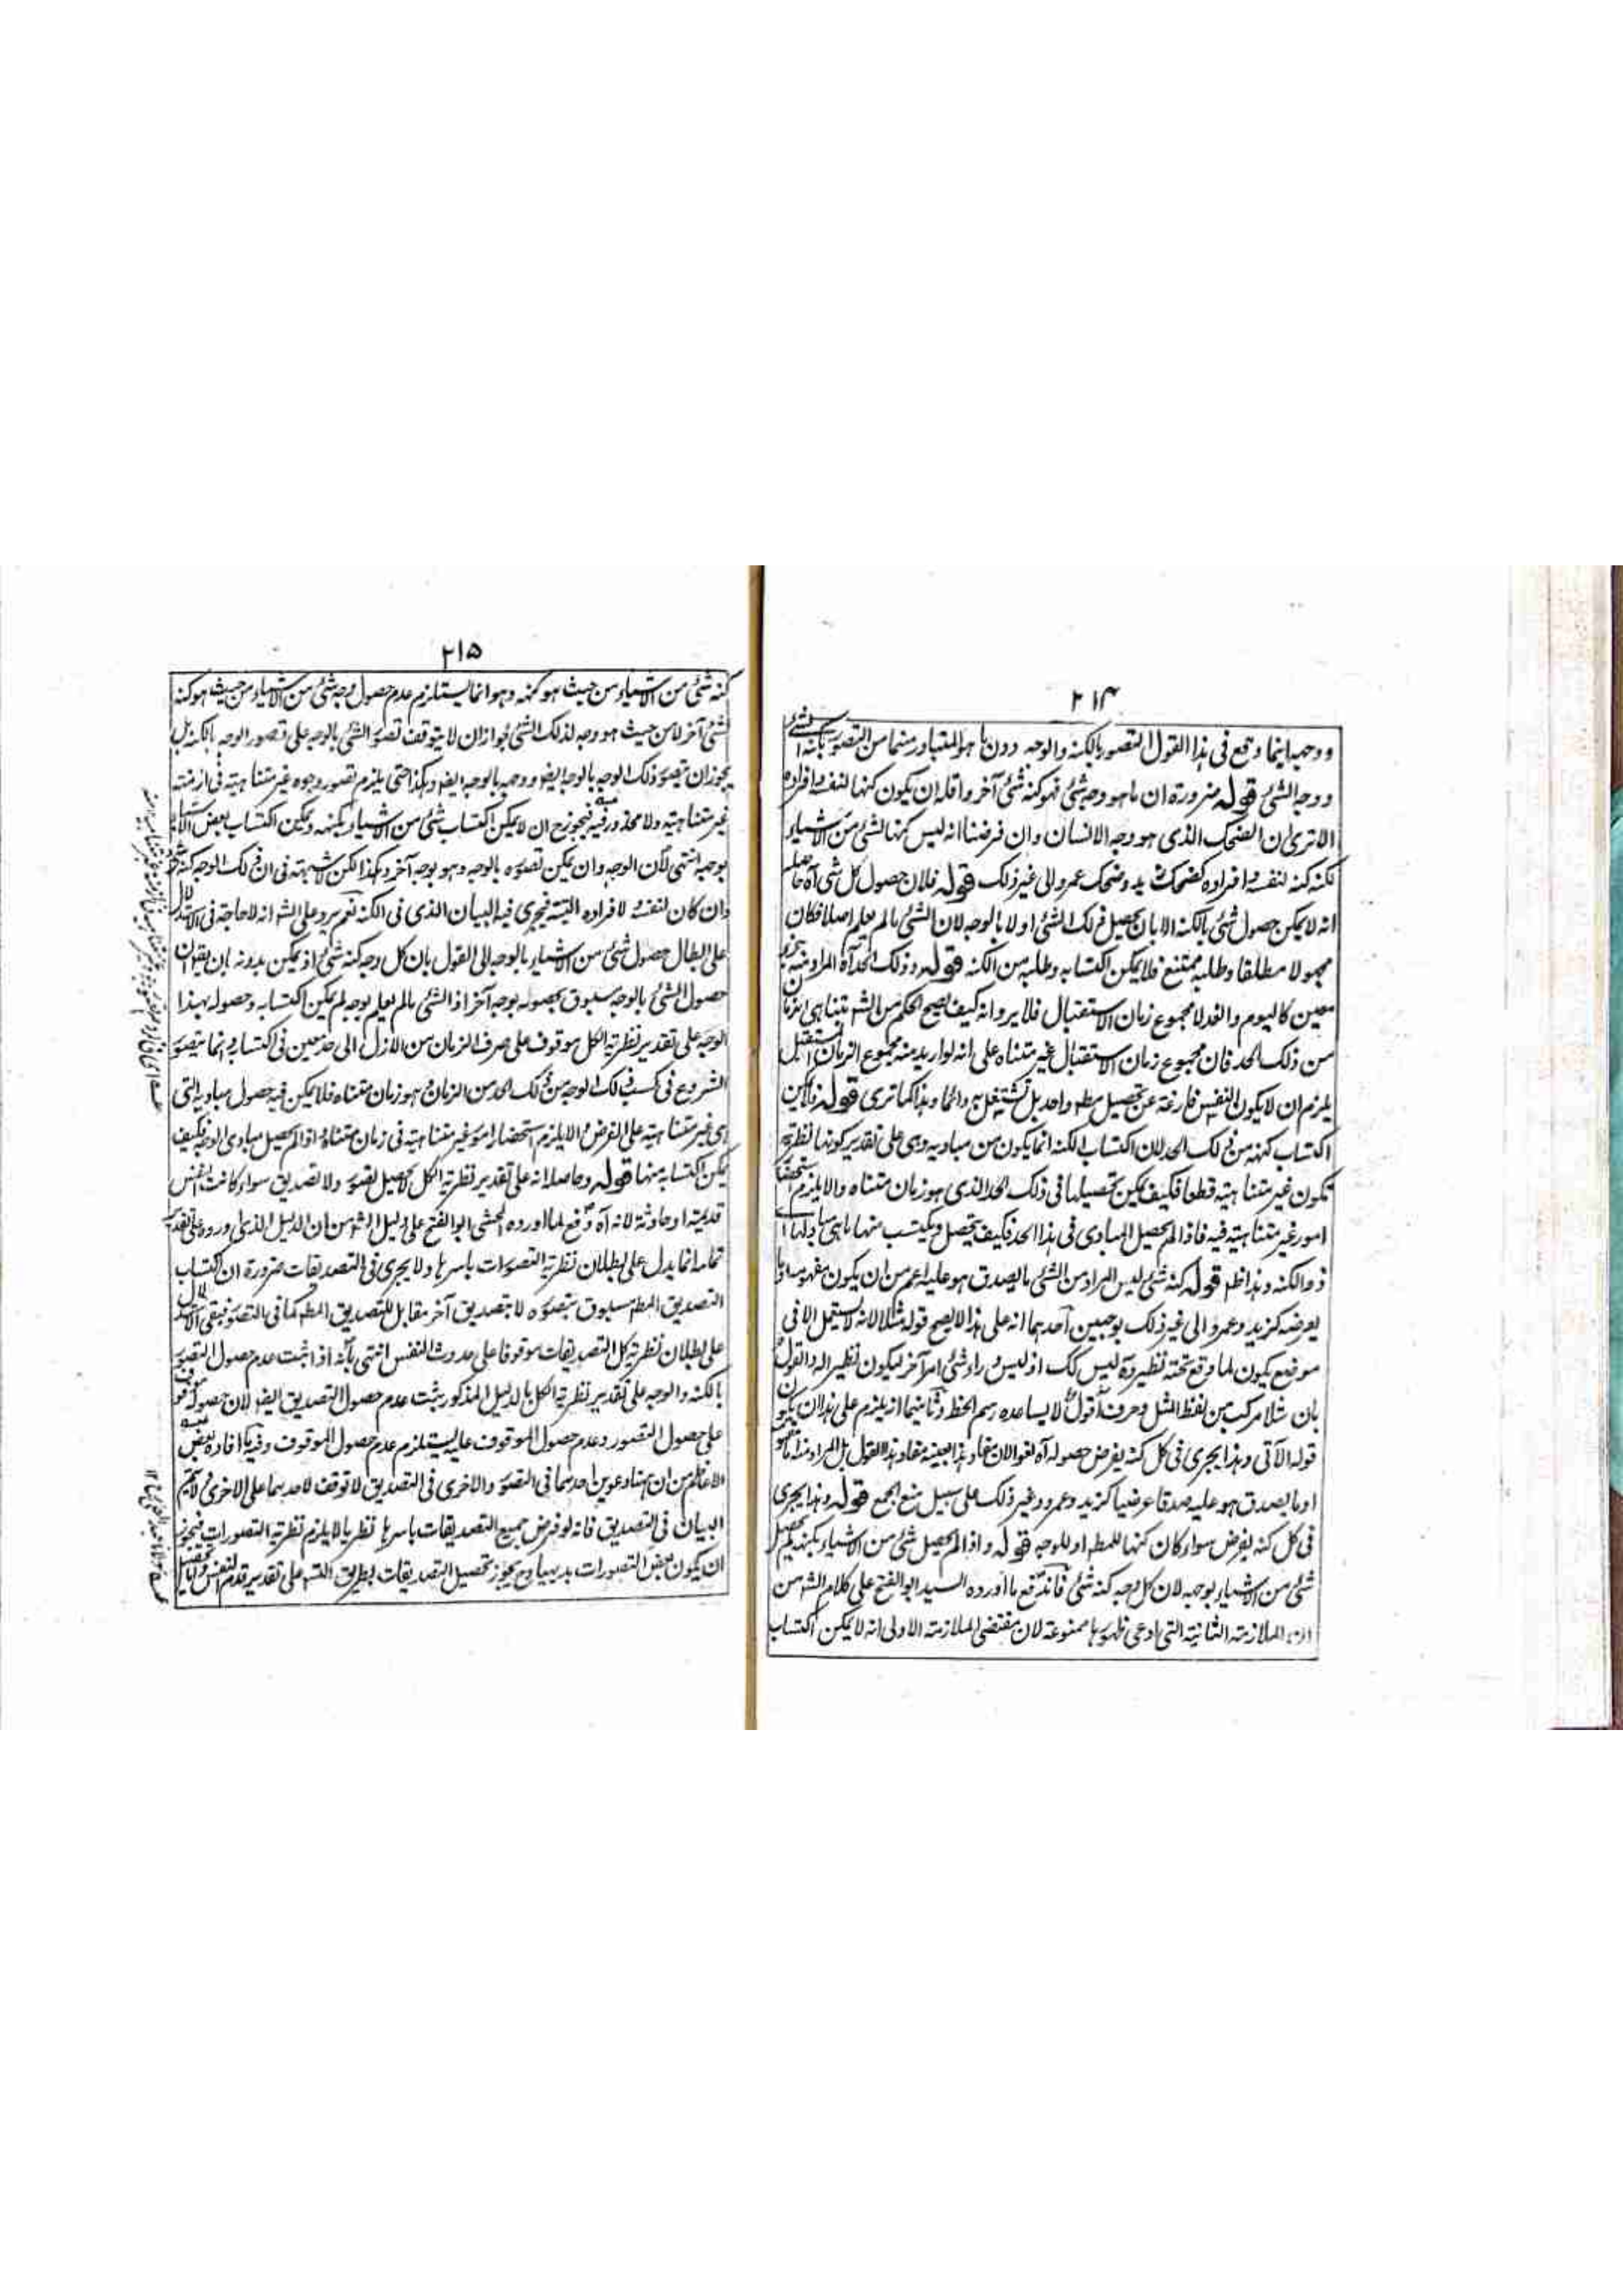 ٢١٤
ووجهه انما وقع فى هذا القول التصور بالكنه والوجه دون ما هو المتبادر منهما من التصور بكنه الشئ
ووجه الشئ قوله ضرورة ان ما هو وجه شئ فهو كنه شئ آخر واقله ان يكون كنها لنفسه وافراده
الا ترى ان الضحك الذى هو وجه الانسان وان فرضنا انه ليس كنها لشئ من الاشياء
لكنه كنه لنفسه وافراده كضحك زيد وضحك عمرو الى غير ذلك قوله فلان حصول كل شئ آه حاصله
انه لا يمكن حصول شئ بالكنه الا بان يحصل ذلك الشئ اولا بالوجه لان الشئ ما لم يعلم اصلا فكان
مجهولا مطلقا وطلبه ممتنع فلا يمكن اكتسابه وطلبه من الكنه قوله وذلك الحد آه المراد منه جزء
معين كاليوم والغد لا مجموع زمان الاستقبال فلا يرد انه كيف يصح الحكم من الشم بتناهى الزمان
من ذلك الحد فان مجموع زمان الاستقبال غير متناه على انه لو اريد منه مجموع الزمان المستقبل
يلزم ان لا يكون النفس فارغة عن تحصيل مطه واحد بل تشتغل به دائما وهذا كما ترى قوله فلا يمكن
اكتساب كنهه من ذلك الحد لان اكتساب الكنه انما يكون من مباديه وهى على تقدير كونها نظرية
تكون غير متناهية قطعا فكيف يمكن تحصيلها فى ذلك الحد الذى هو زمان متناه والا يلزم استحضار
امور غير متناهية فيه فاذا لم يحصل المبادى فى هذا الحد فكيف يتحصل ويكتسب منها ما هى مباد لها
ذو الكنه وهذا ظه قوله كنه شئ ليس المراد من الشئ ما يصدق هو عليه اعم من ان يكون مفهوما او ما
يعرضه كزيد وعمرو الى غير ذلك بوجهين احدهما انه على هذا لا يصح قوله مثلا لانه لا يستعمل الا فى
موضع يكون لما وقع تحته نظير وهٰ ليس كك اذ ليس وراء شئ امر آخر ليكون نظيرا له والقول
بان مثلا مركب من لفظ المثل وحرف لا يساعده رسم الخط وثانيهما انه يلزم على هذا ان يكون
قوله الآتى وهذا يجرى فى كل كنه يفرض حصوله آه لغوا لان مفاد هذا بعينه مفاد هذا القول بل المراد منه اما مفهومه
او ما يصدق هو عليه صدقا عرضيا كزيد وعمرو وغير ذلك على سبيل منع الجمع قوله وهذا يجرى
فى كل كنه يفرض سواء كان كنها للمطه او للوجه قوله واذا لم يحصل شئ من الاشياء بكنهه لم يحصل
شئ من الاشياء بوجهه لان كل وجه كنه شئ فاندفع ما اورده السيد ابو الفتح على كلام الشم من
ان الملازمة الثانية التى ادعى ظهورها ممنوعة لان مقتضى الملازمة الاولى انه لا يمكن اكتساب
٢١٥
كنه شئ من الاشياء من حيث هو كنهه وهو انما يستلزم عدم حصول وجه شئ من الاشياء من حيث هو كنه
لشئ آخر لا من حيث هو وجه لذلك الشئ لجواز ان لا يتوقف تصور الشئ بالوجه على تصور الوجه بالكنه بل
يجوز ان يتصور ذلك الوجه بالوجه ايضه ووجهه بالوجه ايضه وهكذا حتى يلزم تصور وجوه غير متناهية فى ازمنة
غير متناهية ولا محذور فيه فيجوز ح ان لا يمكن اكتساب شئ من الاشياء بكنهه ويمكن اكتساب بعض الاشياء
بوجهه انتهى لان الوجه وان يمكن تصوره بالوجه وهو بوجه آخر وهكذا لكن لا شبهة فى ان ذلك الوجه كنه شئ
وان كان لنفسه لافراده البتة فيجرى فيه البيان الذى فى الكنه نعم يرد على الشم انه لا حاجة فى الاستدلال
على ابطال حصول شئ من الاشياء بالوجه الى القول بان كل وجه كنه شئ اذ يمكن بدونه بان يقه ان
حصول الشئ بالوجه مسبوق بحصوله بوجه آخر اذ الشئ ما لم يعلم بوجه لم يمكن اكتسابه وحصوله بهذا
الوجه على تقدير نظرية الكل موقوف على صرف الزمان من الازل الى حد معين فى اكتسابه وانما يتصور
الشروع فى كسب ذلك الوجه من ذلك الحد من الزمان وهو زمان متناه فلا يمكن فيه حصول مباديه التى
هى غير متناهية على الفرض والا يلزم استحضار امور غير متناهية فى زمان متناه واذا لم يحصل مبادى الوجه فكيف
يمكن اكتسابه منها قوله وحاصله انه على تقدير نظرية الكل لا يحصل تصور ولا تصديق سواء كانت النفس
قديمة او حادثة لانه آه دفع لما اورده المحشى ابو الفتح على دليل الشم من ان الدليل الذى اورده على تقدير
تمامه انما يدل على بطلان نظرية التصورات باسرها ولا يجرى فى التصديقات ضرورة ان اكتساب
التصديق المطه مسبوق بتصوره لا بتصديق آخر مقابل للتصديق المطه كما فى التصور فبقى الاستدلال
على بطلان نظرية كل التصديقات موقوفا على حدوث النفس انتهى بانه اذا ثبت عدم حصول التصور
بالكنه والوجه على تقدير نظرية الكل بالدليل المذكور يثبت عدم حصول التصديق ايضه لان حصوله موقوف
على حصول التصور وعدم حصول الموقوف عليه يستلزم عدم حصول الموقوف وفيه ما افاده بعض
الاعاظم من ان هنا دعويين احدهما فى التصور والاخرى فى التصديق لا توقف لاحدهما على الاخرى ولا يتم
البيان فى التصديق فانه لو فرض جميع التصديقات باسرها نظريا لا يلزم نظرية التصورات فيجوز
ان يكون بعض التصورات بديهيا وح يجوز تحصيل التصديقات بطريق التسه على تقدير قدم النفس وانما يحصل